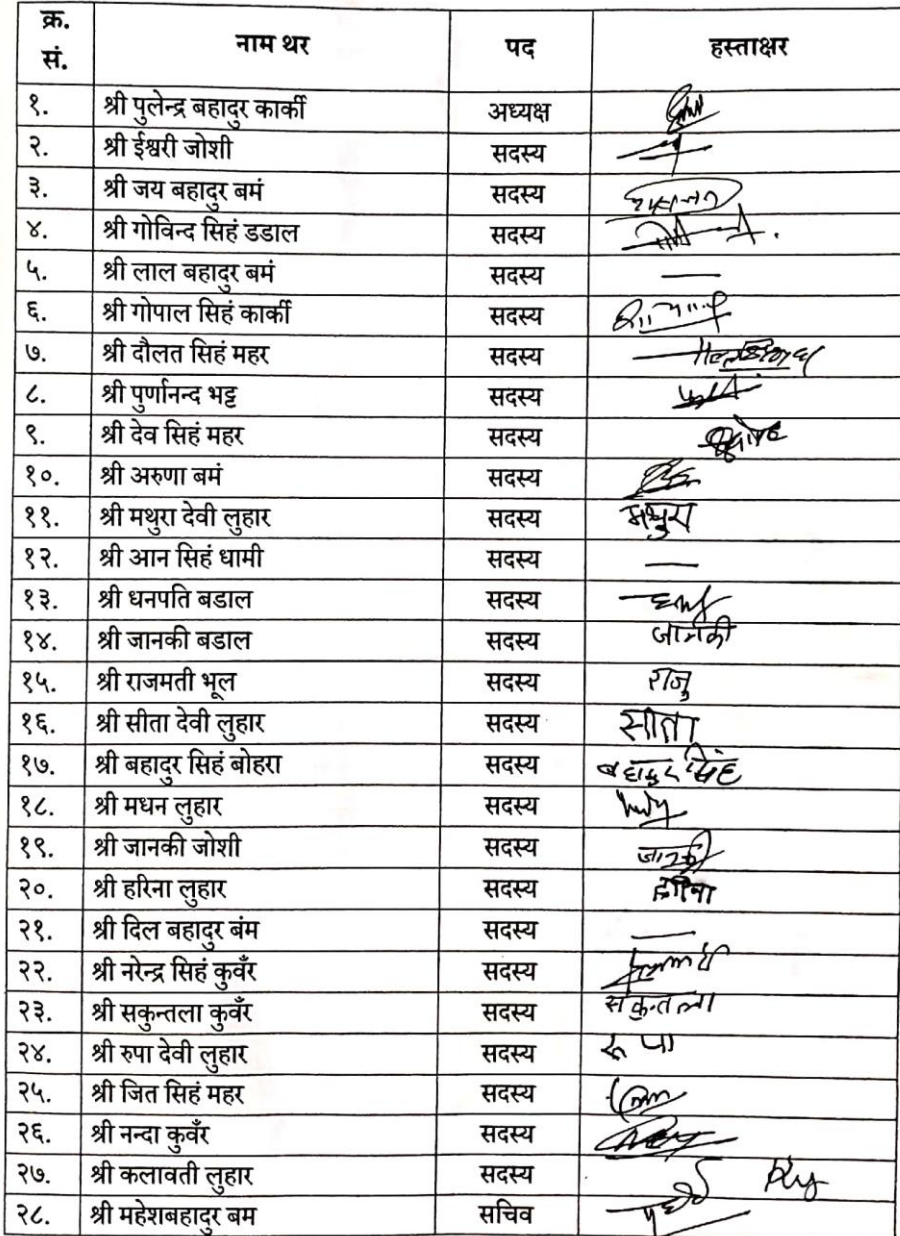 क्र. सं. नाम थर पद हस्ताक्षर
१. श्री पुलेन्द्र बहादुर कार्की अध्यक्ष
२. श्री ईश्वरी जोशी सदस्य
३. श्री जय बहादुर बमं सदस्य
४. श्री गोविन्द सिहं डडाल सदस्य
५. श्री लाल बहादुर बमं सदस्य —
६. श्री गोपाल सिहं कार्की सदस्य
७. श्री दौलत सिहं महर सदस्य
८. श्री पुर्णानन्द भट्ट सदस्य
९. श्री देव सिहं महर सदस्य
१०. श्री अरुणा बमं सदस्य
११. श्री मथुरा देवी लुहार सदस्य मथुरा
१२. श्री आन सिहं धामी सदस्य —
१३. श्री धनपति बडाल सदस्य
१४. श्री जानकी बडाल सदस्य जानकी
१५. श्री राजमती भूल सदस्य राजु
१६. श्री सीता देवी लुहार सदस्य सीता
१७. श्री बहादुर सिहं बोहरा सदस्य बहादुर सिंह
१८. श्री मधन लुहार सदस्य
१९. श्री जानकी जोशी सदस्य जानकी
२०. श्री हरिना लुहार सदस्य हरिना
२१. श्री दिल बहादुर बंम सदस्य —
२२. श्री नरेन्द्र सिहं कुवँर सदस्य
२३. श्री सकुन्तला कुवँर सदस्य सकुन्तला
२४. श्री रुपा देवी लुहार सदस्य रूपा
२५. श्री जित सिहं महर सदस्य
२६. श्री नन्दा कुवँर सदस्य
२७. श्री कलावती लुहार सदस्य
२८. श्री महेशबहादुर बम सचिव